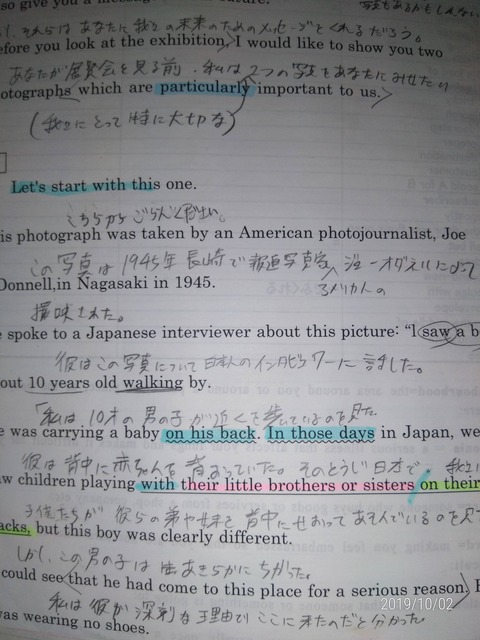 so give you a mess
し,それらは あなたに 我々の未来のためのメッセージをくれるだろう。
efore you look at the exhibition, I would like to show you two
あなたが展覧会を見る前,私は2つの写真をあなたに見せたい
otographs which are particularly important to us.
(我々にとって特に大切な)
Let's start with this one.
こちらからごらんください。
is photograph was taken by an American photojournalist, Joe
この写真は 1945年 長崎で 報道写真家 ジョーオダネルによって
アメリカ人の
Donnell, in Nagasaki in 1945.
撮映された。
e spoke to a Japanese interviewer about this picture: "I saw a b
彼はこの写真について 日本人のインタビュワーに 話した。
out 10 years old walking by.
「私は 10才の男の子が近くを歩いているのを見た
e was carrying a baby on his back. In those days in Japan, we
彼は背中に赤ちゃんを背おっていた。そのとうじ日本で
w children playing with their little brothers or sisters on their
子供たちが 彼らの弟や妹を 背中にせおってあそんでいるのを見
acks, but this boy was clearly different.
しかし,この男の子は あきらかに ちがった。
could see that he had come to this place for a serious reason.
私は 彼が 深刻な理由で ここに来たのだと分かった
was wearing no shoes.
2019/10/02